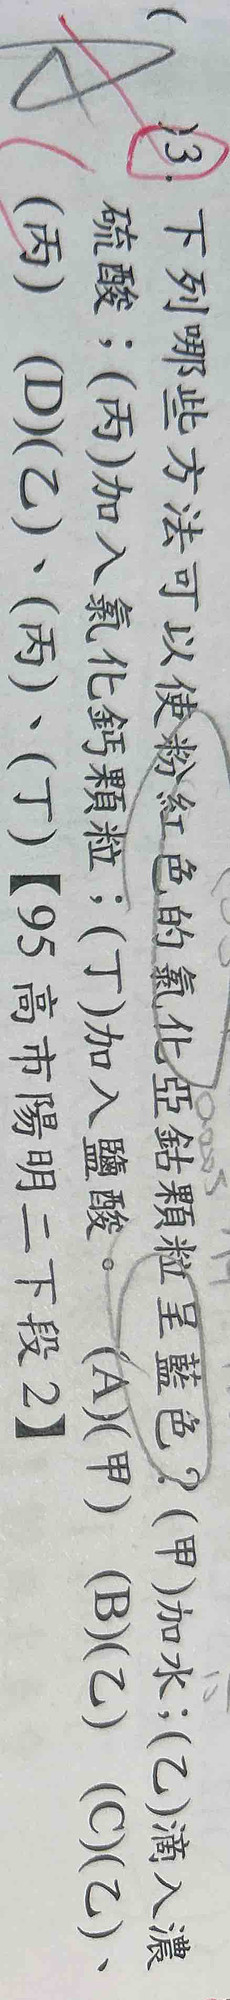 ( )3. 下列哪些方法可以使粉紅色的氯化亞鈷顆粒呈藍色？(甲)加水；(乙)滴入濃
硫酸；(丙)加入氯化鈣顆粒；(丁)加入鹽酸。 (A)(甲) (B)(乙) (C)(乙)、
(丙) (D)(乙)、(丙)、(丁)【95 高市陽明二下段 2】